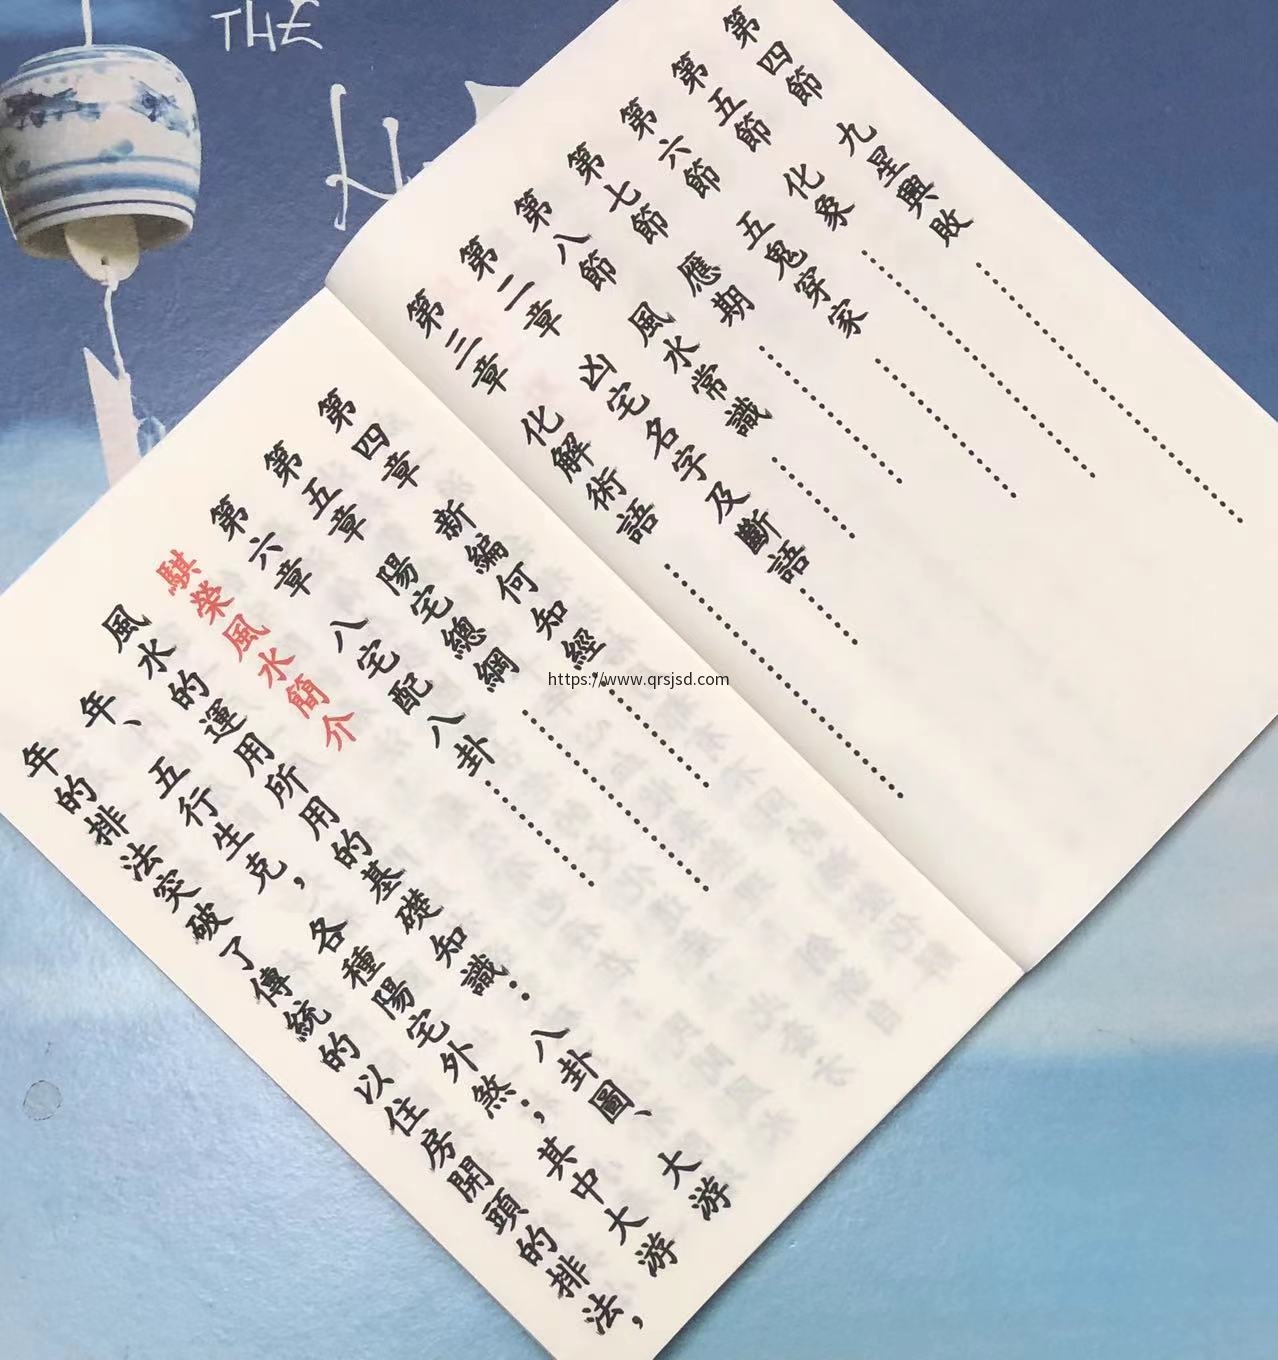 THE
第四節 九星興敗
第五節 化象
第六節 五鬼穿家
第七節 應期
第八節 風水常識
第二章 凶宅名字及斷語
第三章 化解術語
第四章 新編何知經
第五章 陽宅總綱
第六章 八宅配八卦
騏榮風水簡介
風水的運用所用的基礎知識：八卦圖、大游
年、五行生克，各種陽宅外煞；其中大游
年的排法突破了傳統的以住房開頭的排法，
https://www.qrsjsd.com